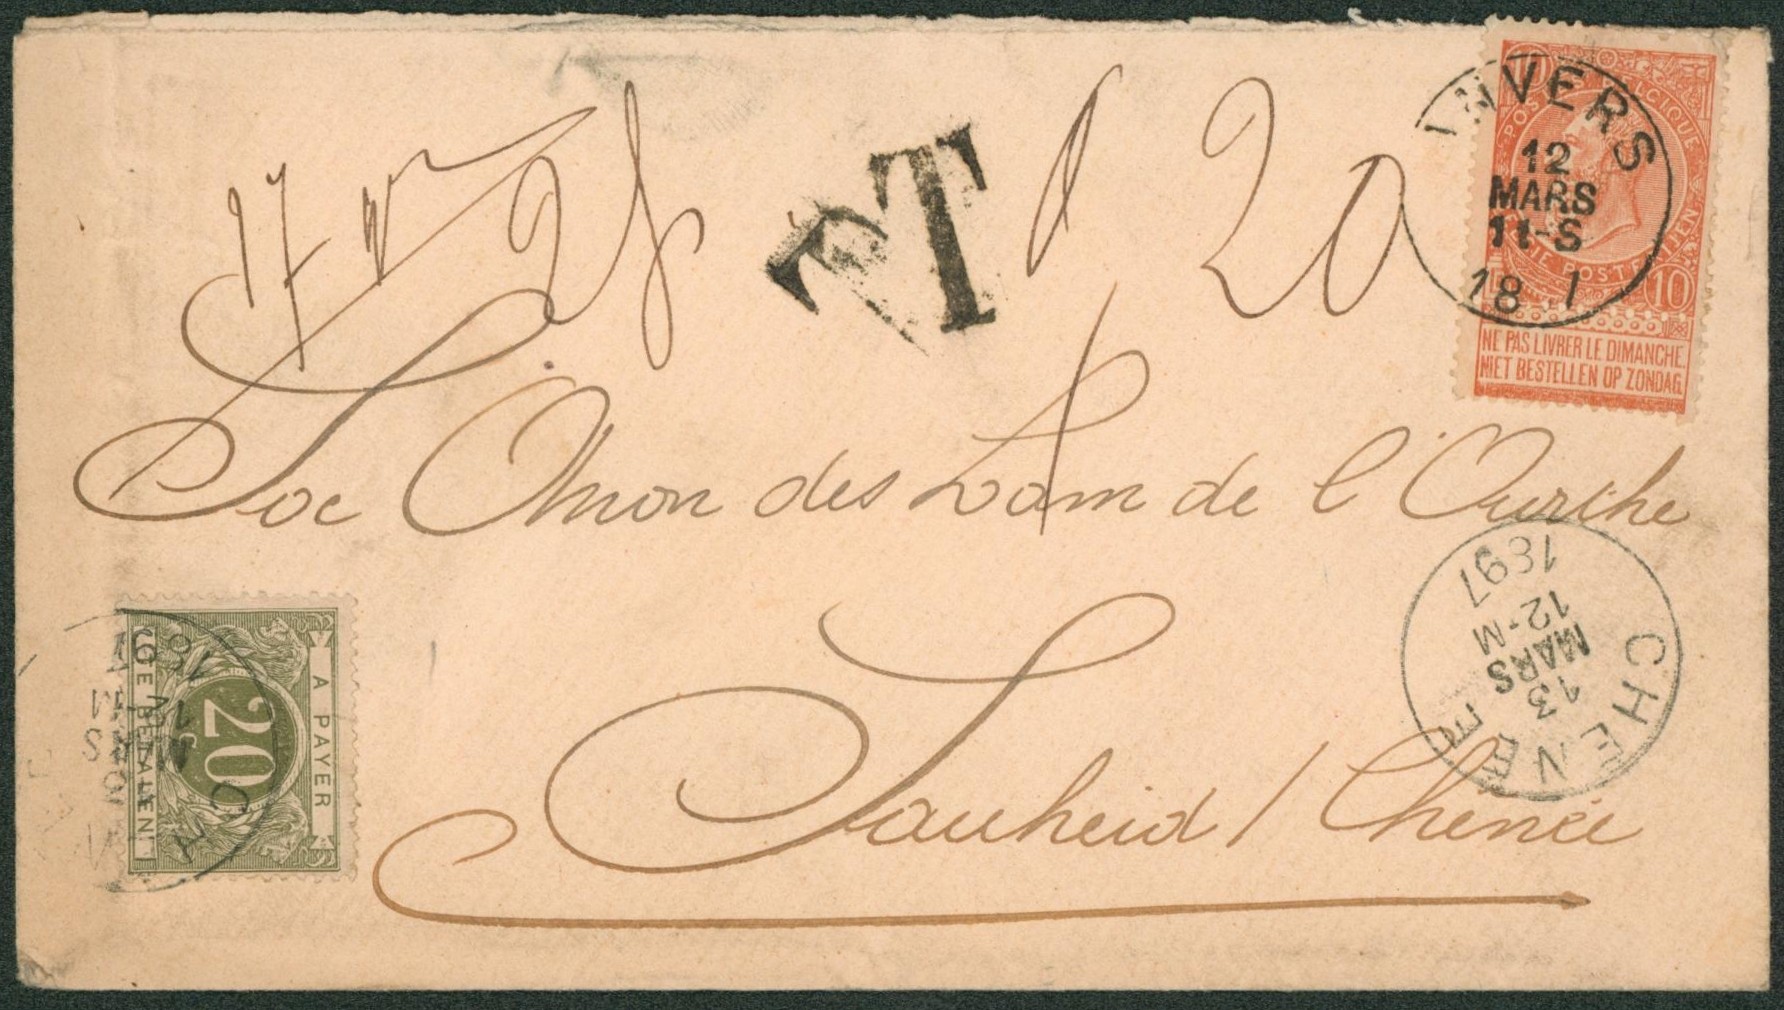 17 gr 28
T
20
10 10
POSTERIJEN
NE PAS LIVRER LE DIMANCHE
NIET BESTELLEN OP ZONDAG
ANVERS
12
MARS
11-S
18
Soc Anon des Lam de l'Ourthe
Sauheid / Chenée
CHENEE
13
MARS
12-M
1897
A PAYER
20
TE BETALEN
MARS